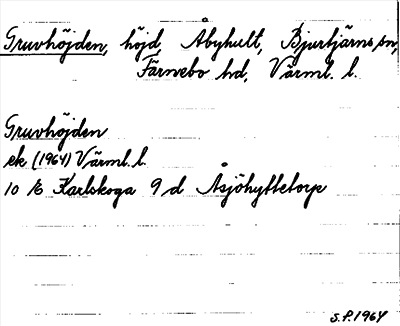 Gruvhöjden, höjd, Åbyhult, Bjurtjärns sn,
Färnebo hd, Värml. l.
Gruvhöjden
ek (1964) Värml. l.
10 E Karlskoga 9 d Åsjöhyttetorp
S.P. 1964